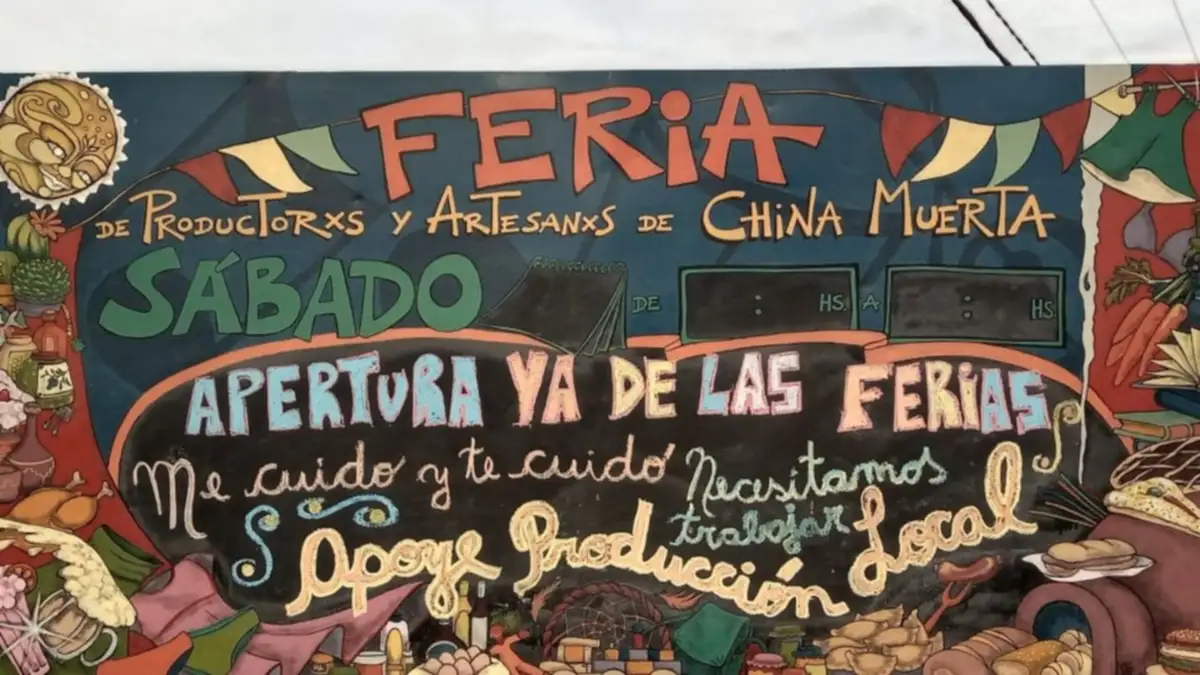 FERiA
DE PRODUCTORXS Y ARTESANXS DE CHiNA MUERTA
SÁBADO DE : HS. A : HS
APERTURA YA DE LAS FERiAS
Me cuido y te cuido Necesitamos trabajar
Apoye Producción Local